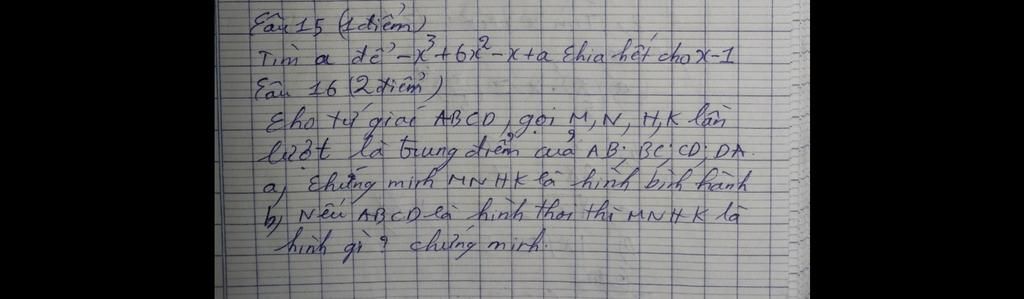 Câu 15 (1 điểm)
Tìm a để -x³+6x²-x+a chia hết cho x-1
Câu 16 (2 điểm)
Cho tứ giác ABCD, gọi M, N, H, K lần
lượt là trung điểm của AB; BC; CD; DA.
a) Chứng minh MNHK là hình bình hành
b) Nếu ABCD là hình thoi thì MNHK là
hình gì? chứng minh.